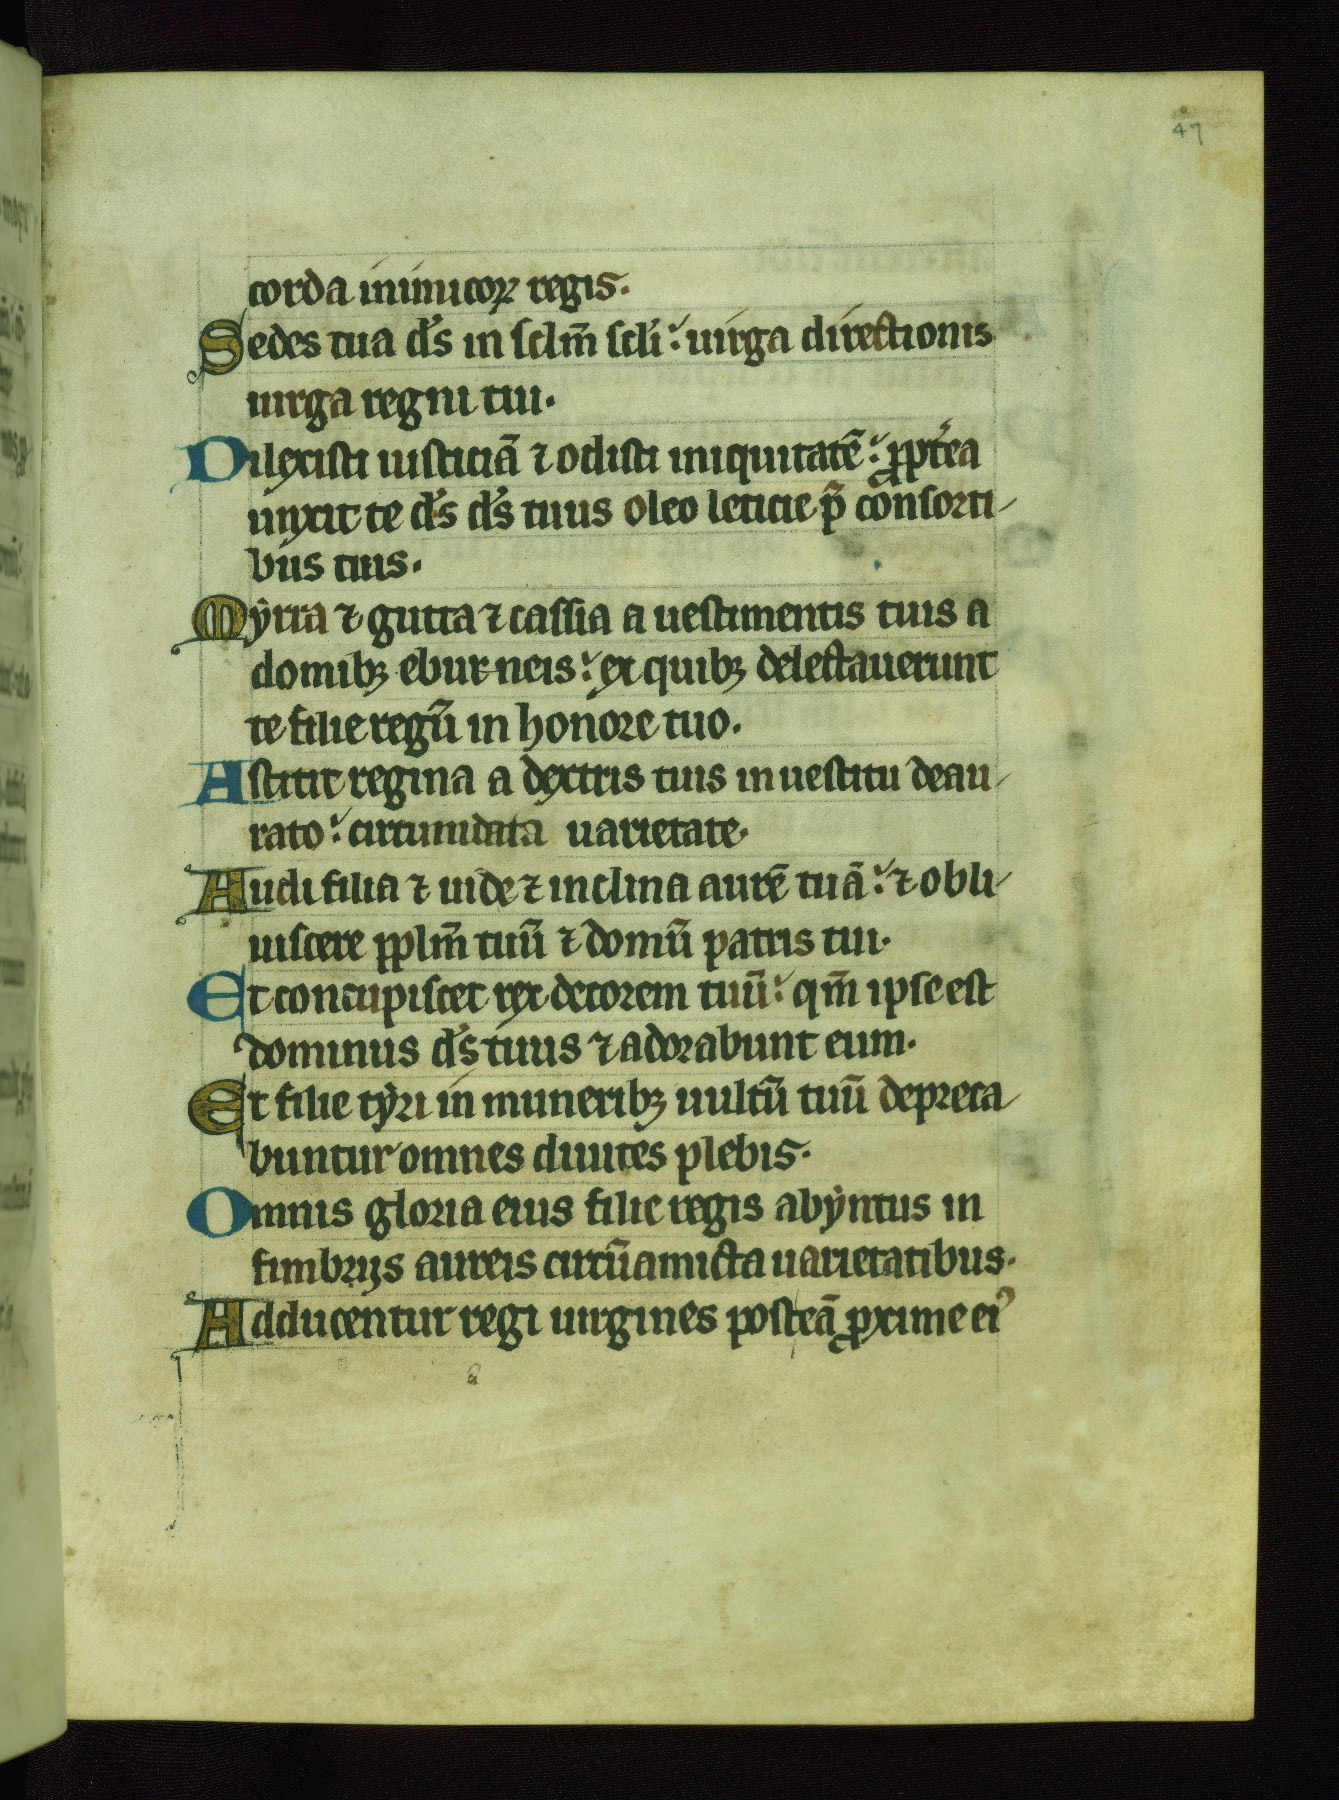 47
corda inimicoꝝ regis.
Sedes tua d̉s in sclm̄ scli᷎: uirga directionis
uirga regni tui.
Dilexisti iusticiā ⁊ odisti iniquitatē: ꝓpt̉ea
unxit te d̉s d̉s tuus oleo leticie p̄ consorti-
bus tuis.
Mẏrra ⁊ gutta ⁊ cassia a uestimentis tuis a
domibꝫ eburneis: ex quibꝫ delectauerunt
te filie regū in honore tuo.
Astitit regina a dextris tuis in uestitu deau-
rato: circumdata uarietate.
Audi filia ⁊ uide ⁊ inclina aurē tuā: ⁊ obli-
uiscere pplm̄ tuū ⁊ domū patris tui.
Et concupiscet rex decorem tuū: qm̄ ipse est
dominus d̉s tuus ⁊ adorabunt eum.
Et filie tẏri in muneribꝫ uultū tuū depreca-
buntur omnes diuites plebis.
Omnis gloria eius filie regis abẏntus in
fimbrijs aureis circūamicta uarietatibus.
Adducentur regi uirgines posteā ꝓxime eiꝰ